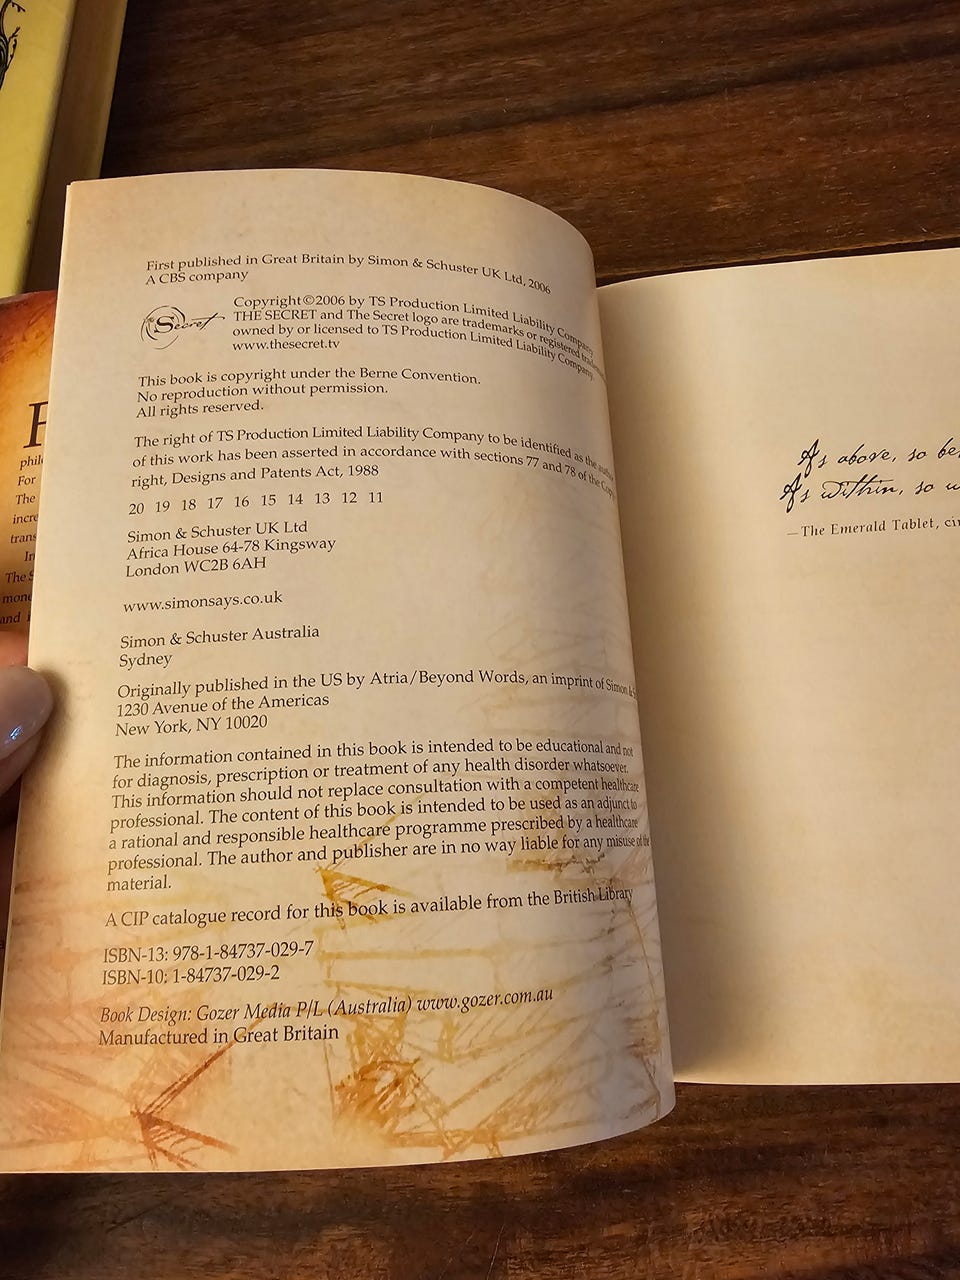 First published in Great Britain by Simon & Schuster UK Ltd, 2006
A CBS company
The Secret
Copyright©2006 by TS Production Limited Liability Company
THE SECRET and The Secret logo are trademarks or registered
owned by or licensed to TS Production Limited Liability Company.
www.thesecret.tv
This book is copyright under the Berne Convention.
No reproduction without permission.
All rights reserved.
The right of TS Production Limited Liability Company to be identified as the author
of this work has been asserted in accordance with sections 77 and 78 of the Copy
right, Designs and Patents Act, 1988
20 19 18 17 16 15 14 13 12 11
Simon & Schuster UK Ltd
Africa House 64-78 Kingsway
London WC2B 6AH
www.simonsays.co.uk
Simon & Schuster Australia
Sydney
Originally published in the US by Atria/Beyond Words, an imprint of Simon &
1230 Avenue of the Americas
New York, NY 10020
The information contained in this book is intended to be educational and not
for diagnosis, prescription or treatment of any health disorder whatsoever.
This information should not replace consultation with a competent healthcare
professional. The content of this book is intended to be used as an adjunct to
a rational and responsible healthcare programme prescribed by a healthcare
professional. The author and publisher are in no way liable for any misuse of the
material.
A CIP catalogue record for this book is available from the British Library
ISBN-13: 978-1-84737-029-7
ISBN-10: 1-84737-029-2
Book Design: Gozer Media P/L (Australia) www.gozer.com.au
Manufactured in Great Britain
As above, so be
As within, so w
—The Emerald Tablet, cir
phil
For
The
incre
trans
In
The S
mone
and